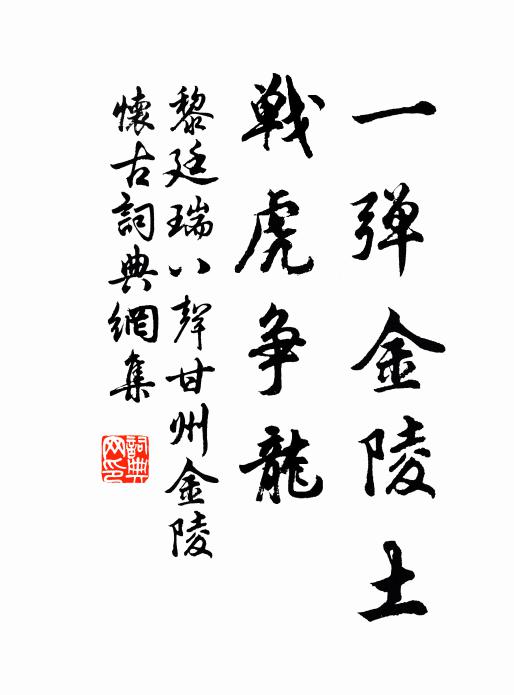 一弹金陵土
戦虎争龍
黎廷瑞八聲甘州金陵
懷古詞典網集
詞典网印